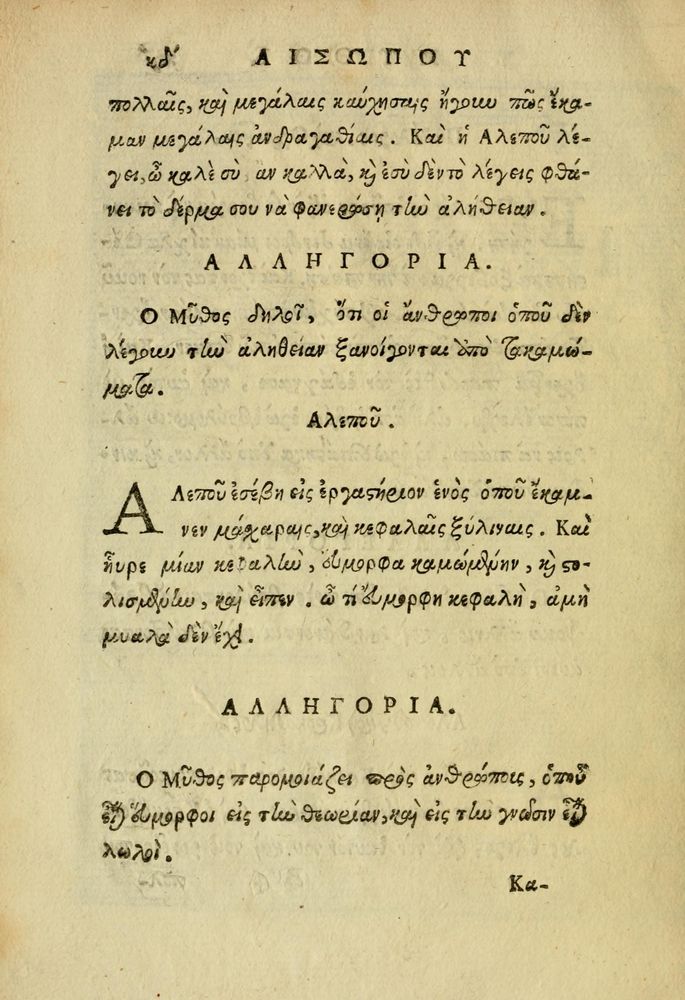 κδ΄ ΑΙΣΩΠΟΥ
πολλαῖς, καὶ μεγάλαις καύχησαις ἤγουν πῶς ἔκα-
μαν μεγάλαις ἀνδραγαθίαις. Καὶ ἡ Αλεποῦ λέ-
γει, ὦ καλὲ σὺ ἀν καλλὰ, κỳ ἐσὺ δὲν τὸ λέγεις φθά-
νει τὸ δέρμα σου νὰ φανερώση τὴν ἀλήθειαν.
ΑΛΛΗΓΟΡΙΑ.
Ο Μῦθος δηλοῖ, ὅτι οἱ ἄνθρωποι ὁποῦ δὲν
λέγουν τὴν ἀληθειαν ξανοίγονται ἀπὸ τακαμώ-
ματα.
Αλεποῦ.
ΑΛεποῦ ἐσέβη εἰς ἐργαστήριον ἑνὸς ὁποῦ ἔκαμ-
νεν μάχαραις, καὶ κεφαλαῖς ξύλιναις. Καὶ
ἧυρε μίαν κεφαλὴν, ὄυμορφα καμώμενην, κỳ στο-
λισμένην, καὶ εἶπεν. ὦ τί ὄυμορφη κεφαλὴ, ἀμὴ
μυαλὰ δὲν ἔχει.
ΑΛΛΗΓΟΡΙΑ.
Ο Μῦθος παρομοιάζει πρὸς ἀνθρώποις, ὁποῦ
εἶναι ὄυμορφοι εἰς τὴν θεωρίαν, καὶ εἰς τὴν γνῶσιν εἶναι
λωλοὶ.
Κα-